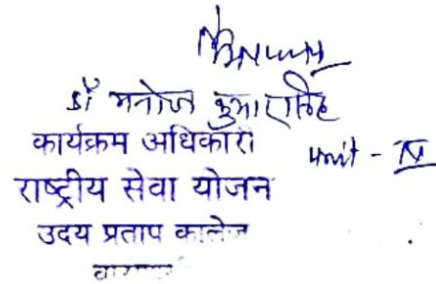 डॉ मनोज कुमार सिंह
कार्यक्रम अधिकारी
unit - IV
राष्ट्रीय सेवा योजन
उदय प्रताप कालेज